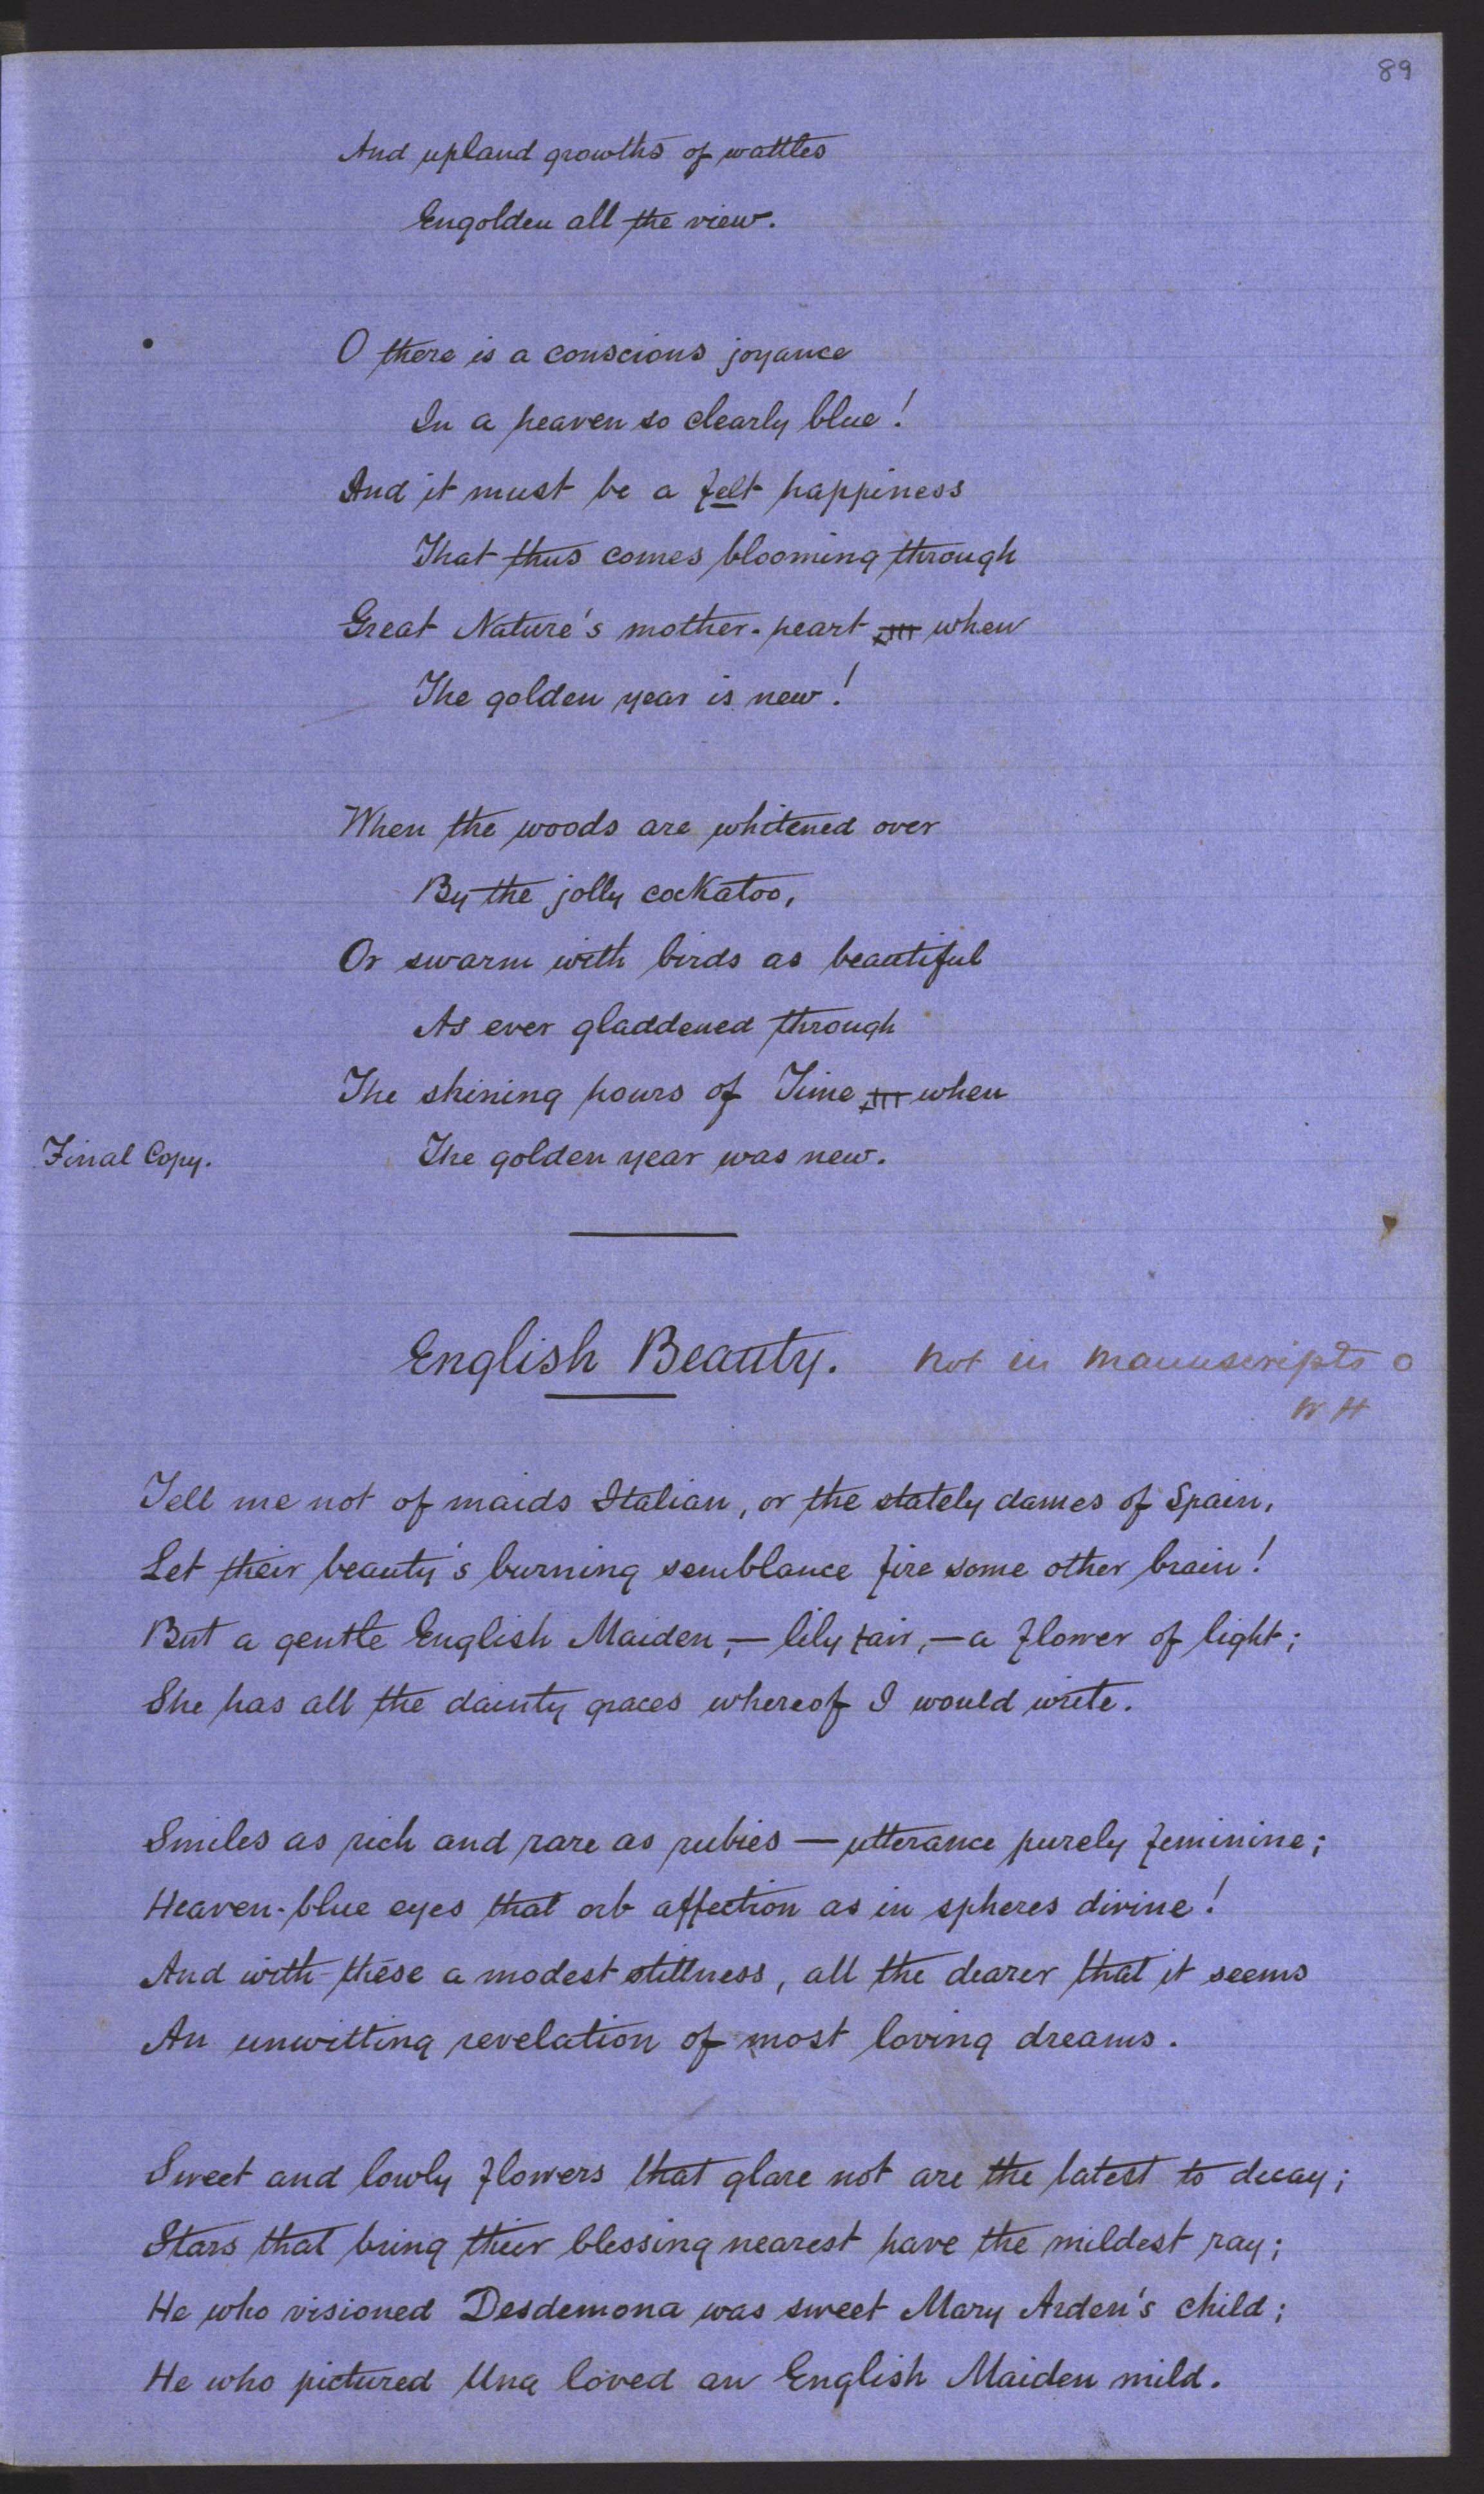 89
And upland growths of wattles
Engolden all the view.
O there is a conscious joyance
In a heaven so clearly blue!
And it must be a felt happiness
That thus comes blooming through
Great Nature's mother-heart when
The golden year is new!
When the woods are whitened over
By the jolly cockatoo,
Or swarm with birds as beautiful
As ever gladdened through
The shining hours of Time when
Final Copy. The golden year was new.
English Beauty. Not in manuscripts O
W H
Tell me not of maids Italian, or the stately dames of Spain,
Let their beauty's burning semblance fire some other brain!
But a gentle English Maiden,— lily fair,—a flower of light;
She has all the dainty graces whereof I would write.
Smiles as rich and rare as rubies — utterance purely feminine;
Heaven-blue eyes that orb affection as in spheres divine!
And with these a modest stillness, all the dearer that it seems
An unwitting revelation of most loving dreams.
Sweet and lowly flowers that glare not are the latest to decay;
Stars that bring their blessing nearest have the mildest ray;
He who visioned Desdemona was sweet Mary Arden's child;
He who pictured Una loved an English Maiden mild.